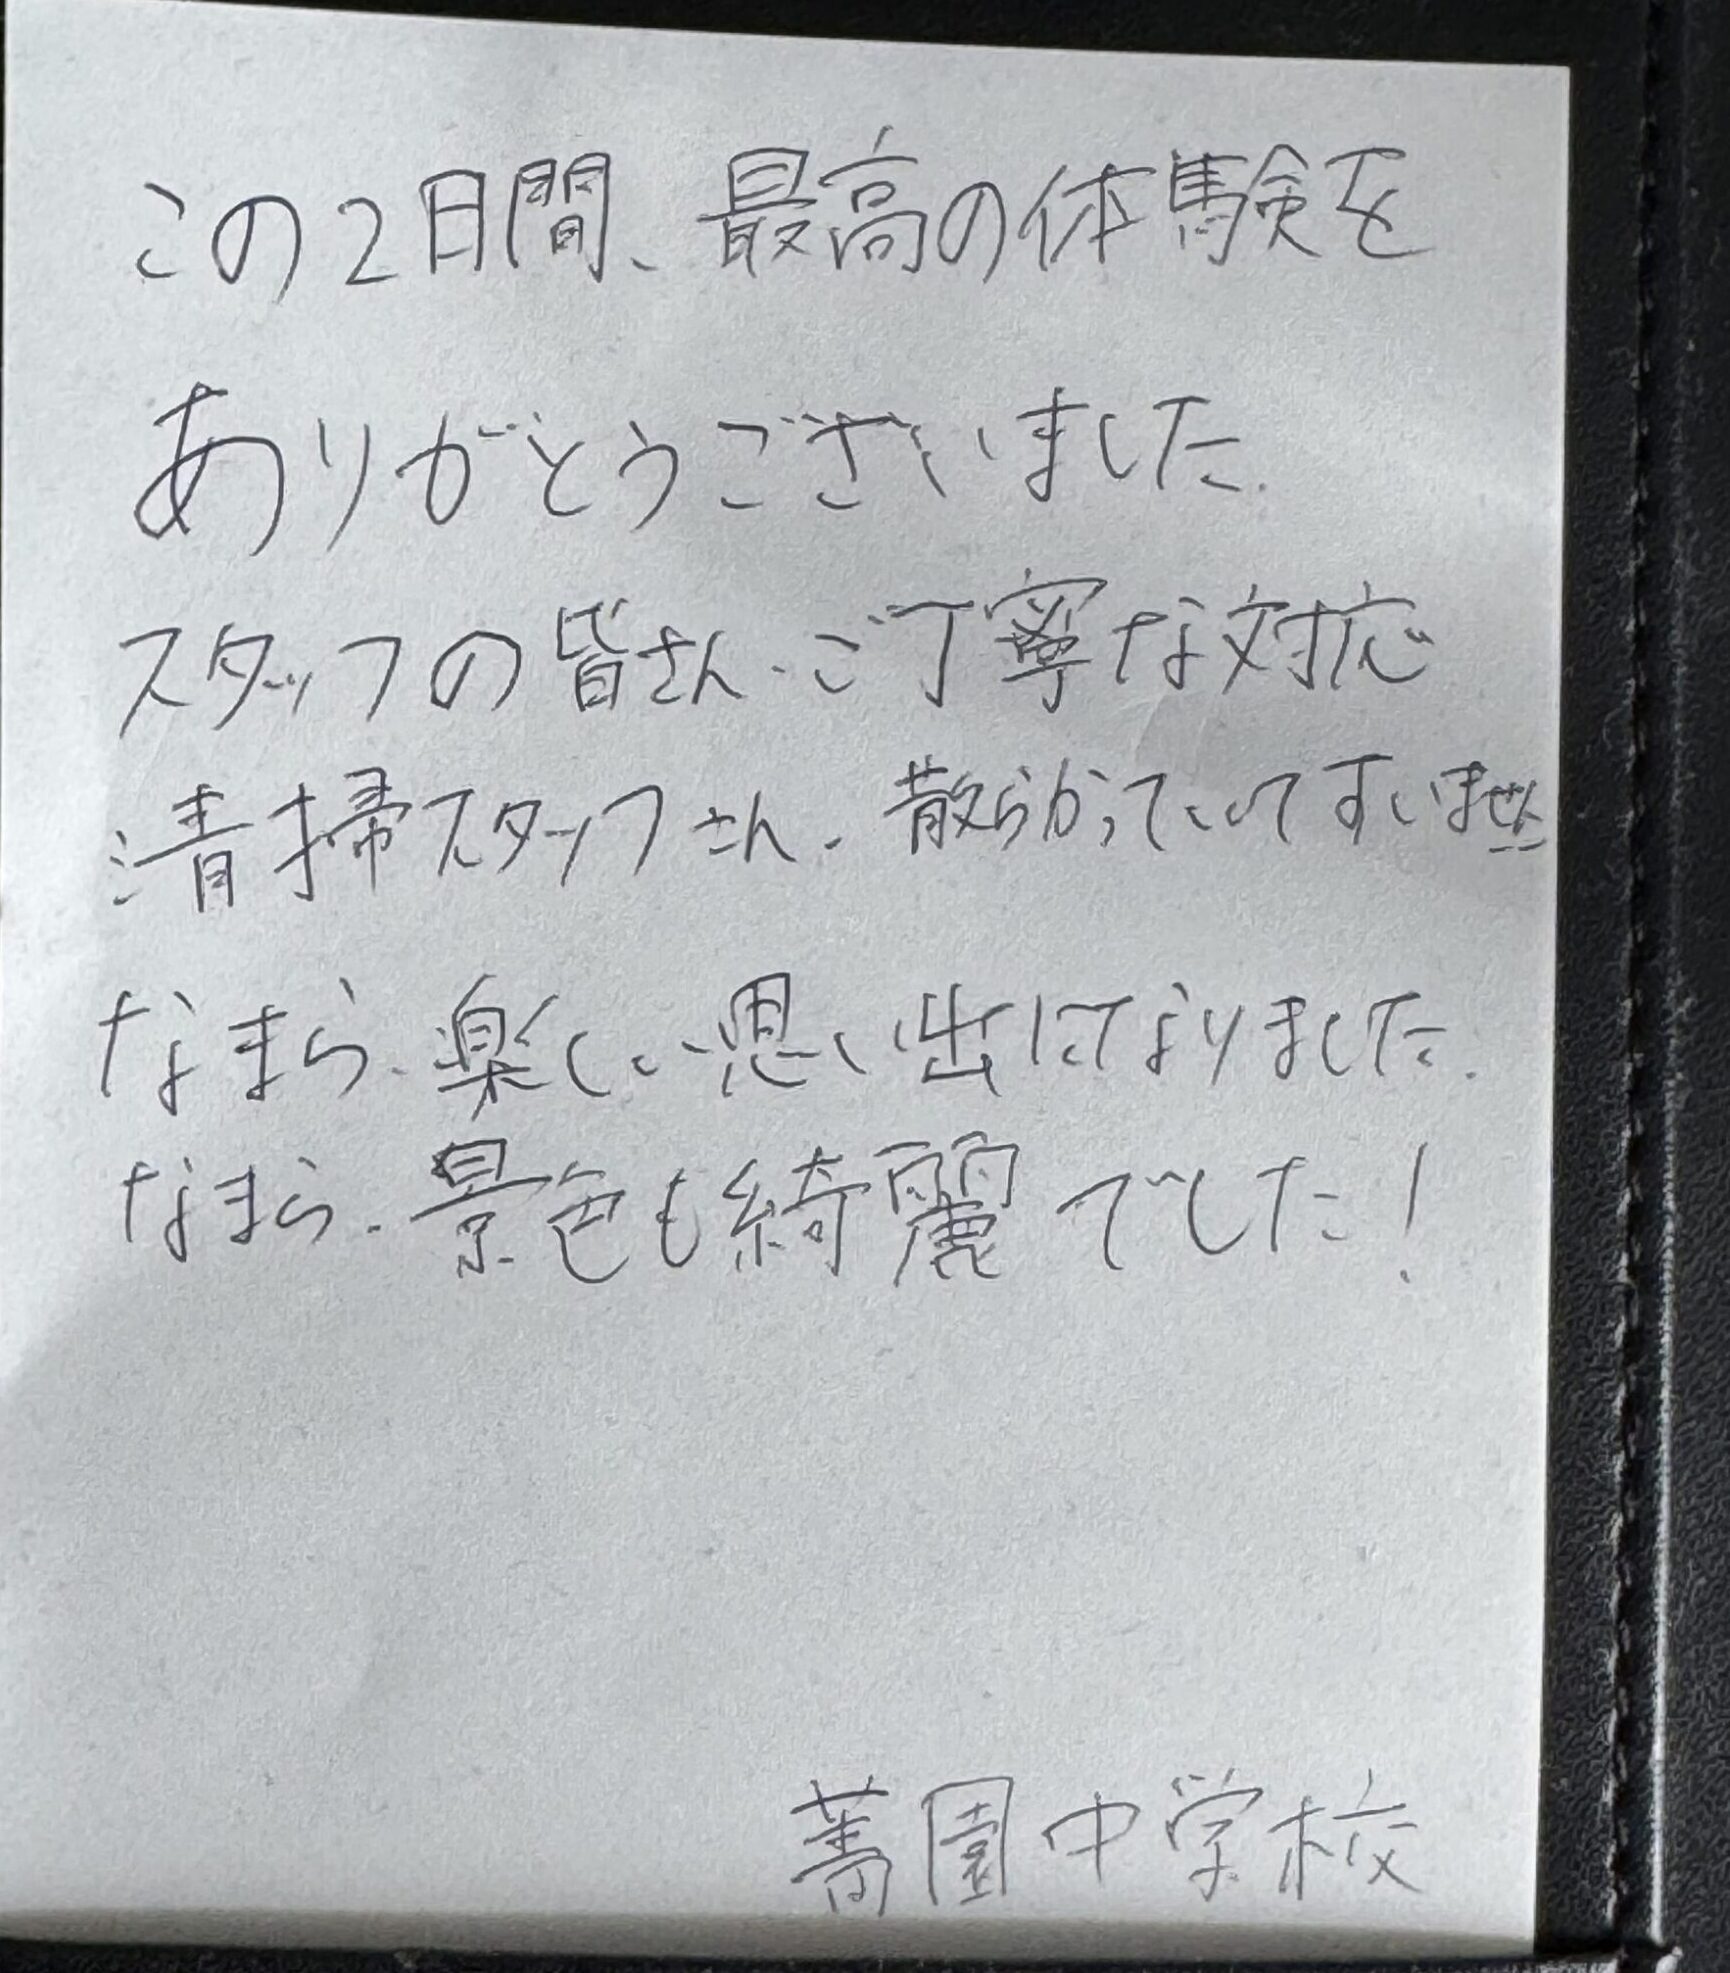 この2日間、最高の体験を
ありがとうございました.
スタッフの皆さん、ご丁寧な対応
清掃スタッフさん、散らかっていてすいません
なまら、楽しい思い出になりました.
なまら、景色も綺麗でした!
菁園中学校